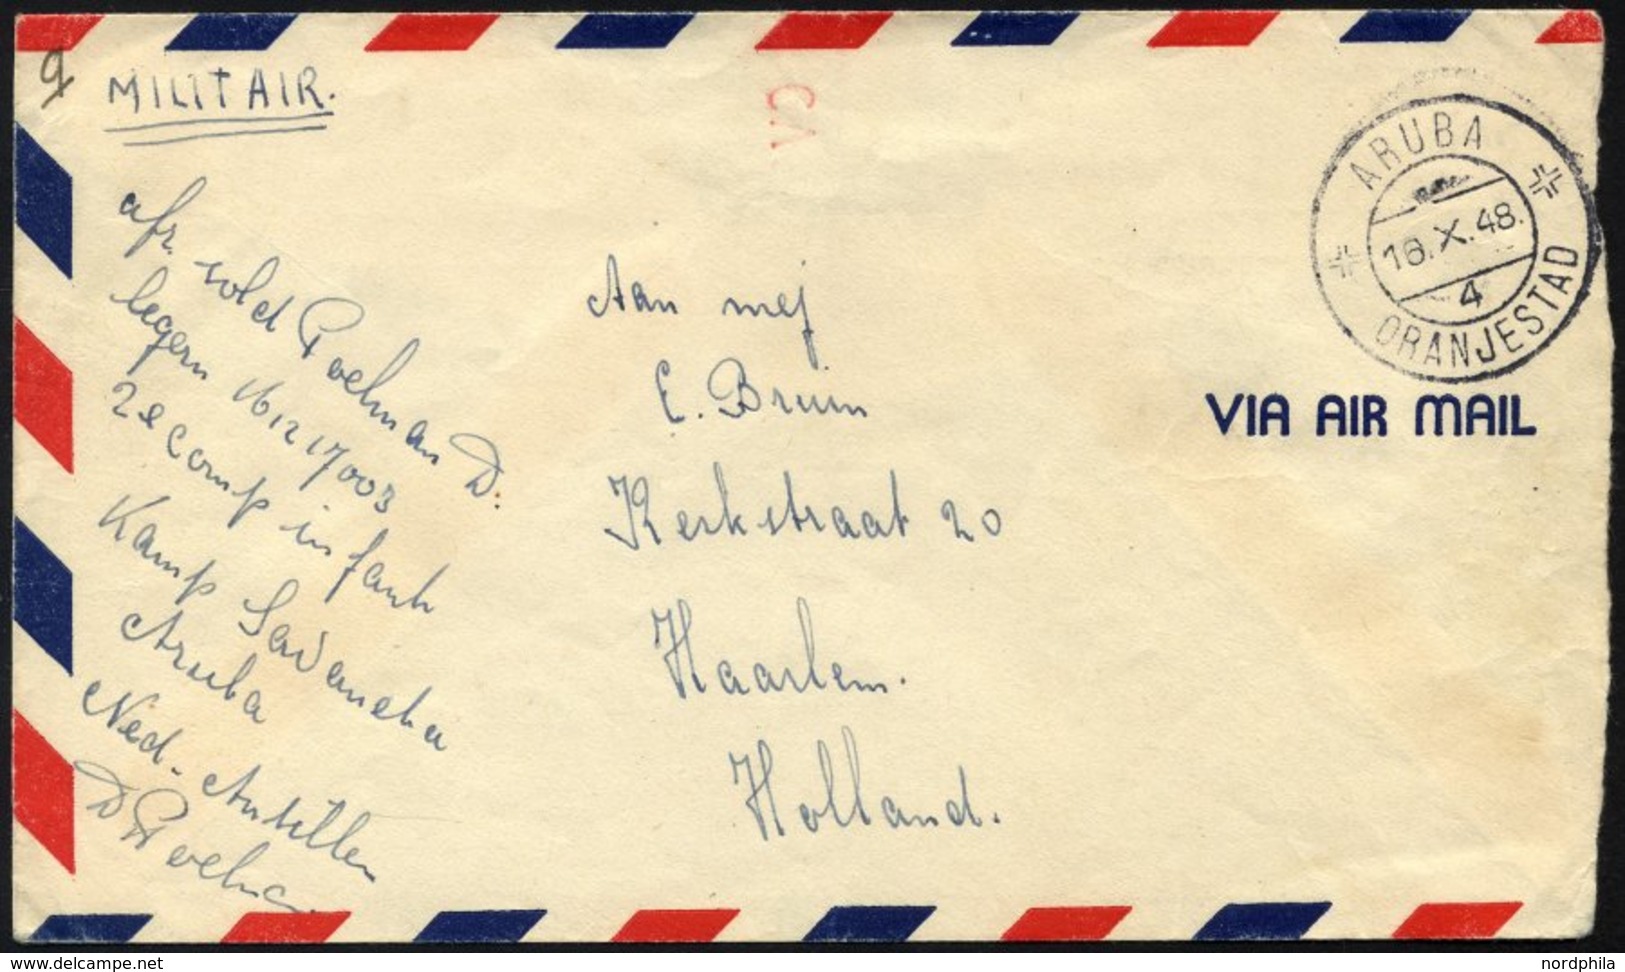 MILITAIR.
ARUBA
16.X.48.
4
ORANJESTAD
VIA AIR MAIL
afz. sold Poelman D.
legern 16 12 17 003
2e Comp infanh
Kamp Savaneta
Aruba
Ned. Antillen
D Poelma
Aan mej
E. Bruin
Kerkstraat 20
Haarlem.
Holland.
delcampe.net
nordphila